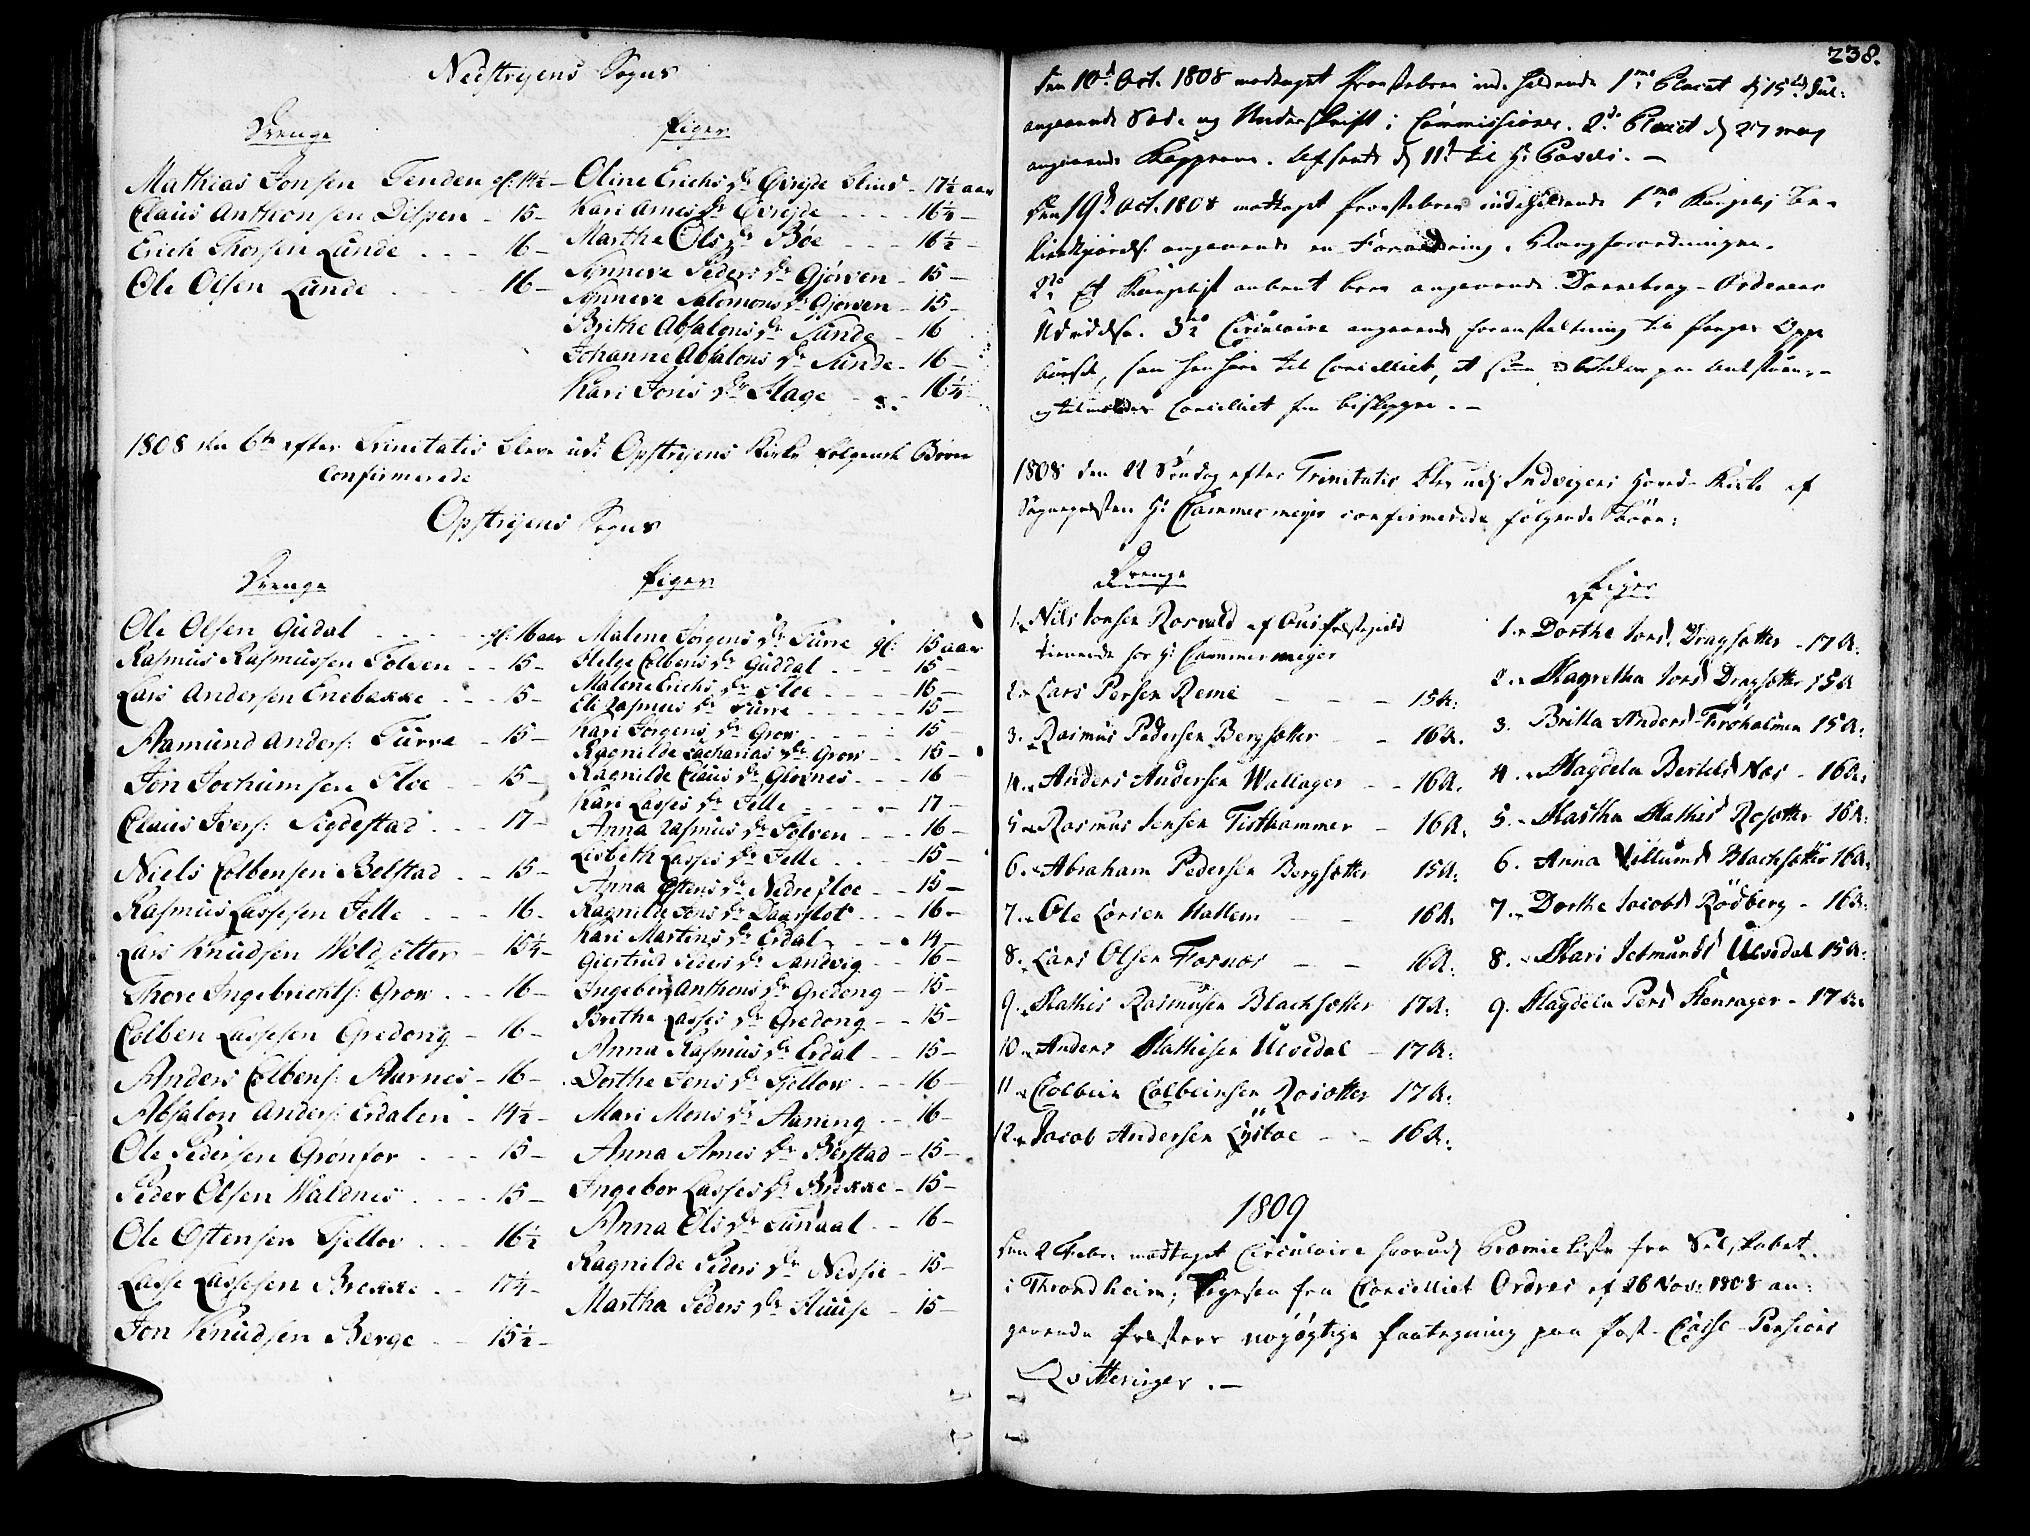 Nedstryens Sogn
Drenge
Mathias Jonsen Tenden gl: 14½ –
Claus Anthonsen Dispen – 15 –
Erich Thorsen Lunde . . . 16 –
Ole Olsen Lunde . . . 16 –
Piger
Oline Erichs Dr Øvreide – 17½ aar
Kari Arnes Dr Øvreide . . . 16½ –
Marthe Ols Dr Bøe . . . 16½ –
Synneve Peders Dr Gjørven – 15 –
Synneve Salomons Dr Gjorven – 15 –
Brithe Absalons Dr Sunde – 16
Johanne Absalons Dr Sunde – 16 –
Kari Jons Dr Hage – 16½
1808 den 6te efter Trinitatis blev udi Opstryens Kirke følgende Børn
Confirmerede
Opstryens Sogn
Drenge
Ole Olsen Gudal . . . gl: 16 aar
Rasmus Rasmussen Folven . . 15 –
Lars Andersen Enebække . . . 15 –
Aamund Anders: Turre – 15 –
Jon Jochumsen Floe – 15 –
Claus Ivers: Sigdestad . . . 17 –
Niels Colbensen Bolstad . . 15 –
Rasmus Lassesen Jelle . . . 16 –
Lars Knudsen Woldsetter – 15½ –
Thore Ingebrichts: Grov . . . 16 –
Colben Lassesen Gredong – 16 –
Anders Colbens: Aarnes – 16 –
Absalon Anders: Erdalen – 14½ –
Ole Pedersen Grønfor . . . 15 –
Peder Olsen Waldnes . . . 15 –
Ole Ostensen Tjellov . . . 16½
Lasse Lassesen Brekke . . 17½ –
Jon Knudsen Berge . . 15½ –
Piger
Malene Jorgens Dr Turre gl: 15 aar
Helge Colbens Dr Guddal . . 15 –
Malene Erichs Dr Floe . . . 16 –
Eli Rasmus Dr Turre . . . 15 –
Kari Jorgens Dr Grov . . . 15 –
Ragnilde Zacharias Dr Grov . . 15 –
Ragnilde Claus Dr Glovnes . . . 16 –
Kari Lasses Dr Jelle . . . 17 –
Anna Rasmus Dr Folven . . . 16 –
Lisbeth Lasses Dr Jelle . . . 15 –
Anna Ostens Dr Nedrefloe . . 15 –
Ragnilde Jons Dr Daarslot . . . 16 –
Kari Martens Dr Erdal . . . 14 –
Giertrud Peders Dr Sandvig – 16 –
Ingebor Anthons Dr Gredong – 15 –
Brethe Lasses Dr Gredong – 15 –
Anna Rasmus Dr Erdal – – 15 –
Dorthe Jens Dr Tjellow . . 16 –
Mari Mons Dr Aaning . . 16 –
Anna Arnes Dr Børstad – 15 –
Ingebor Lasses Dr Brekke – 15 –
Anna Ols Dr Sundal . . 16 –
Ragnilde Peders Dr Nesje – 15 –
Martha Peders Dr Huuse – 15 –
238.
den 10d Oct. 1808 modtaget Provstebrev indeholdende 1mo Placat d 15de Jul:
angaaende Eed og Underskrift i Commissioner. 2do Placat d 27 May
angaaende Kopperne. Afsendt d 11t til Hr
Den 19d Oct. 1808 modtaget Provstebrev indeholdende 1mo Kongelig Be-
kiendtgiørelse angaaende en Forandring i Rangforordningen.
2do Et Kongeligt aabent brev angaaende Dannebrog-Ordenens
Udvidelse. 3tio Circulaire angaaende foranstaltning til
til Cancelliet, at
Cancelliet fra bispen. –
1808 den 22 Søndag efter Trinitatis blev udj Indvigens Hoved-Kirke af
Sognepræsten Hr Cammermeyer confirmerede følgende Børn:
Drenge
1. Nils Jonsen Rosvald af Præstegield
tienende hos Hr Cammermeyer
2. Lars Persen Reme – – – 15 A:
3. Rasmus Pedersen Bergsetter – – 16 A.
4. Anders Andersen Wallager – – 16 A.
5. Rasmus Jensen Tisthammer – 16 A.
6. Abraham Pedersen Bergsetter 15 A:
7. Ole Larsen Hallem – – 16 A.
8. Lars Olsen Fornes – – 16 A:
9. Mathis Rasmusen Blachsetter 17 A:
10. Anders Mathisen Ulvedal – 17 A:
11. Colbein Colbeinsen Rosetter 17 A:
12. Jacob Andersen Lysboe – – 16 A:
Piger
1. Dorthe Jonsd. Dragsetter – 17 A:
2. Magretha Jonsd Dragsetter 15 A
3. Britta Andersd Frøholmen 15 A:
4. Magdela Bertelsd Nos – 16 A:
5. Martha Mathisd Rosetter 16 A:
6. Anna Villumsd Blachsetter 16 A:
7. Dorthe Jacobsd Rødberg – 16 A:
8. Mari Jetmundsd Ulvedal 15 A:
9. Magdela Persd Stenrager – 17 A:
1809
den 2 Febr. modtaget Circulaire hvorudj Præmieliste fra Selskabet
i Throndheim; fra Cancelliet Ordres af 26 Nov: 1808 an-
gaaende Præsters nøjagtige Paategning paa Post-Casse-Pensions
Qvitteringer. –